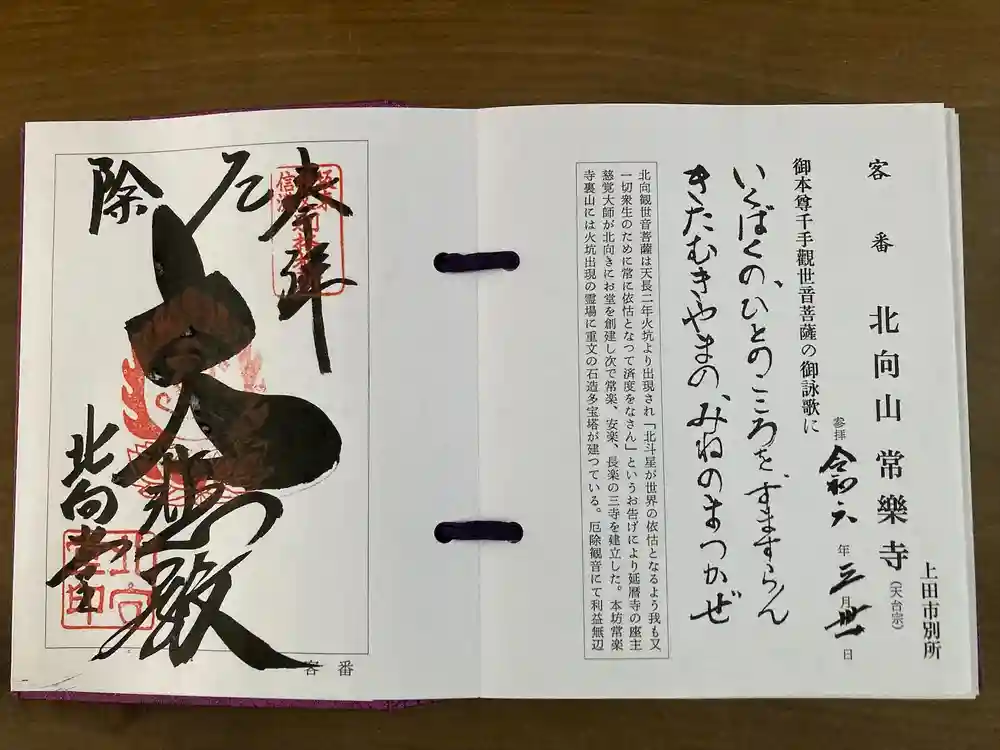 上田市別所
客番 北向山常樂寺(天台宗)
参拝 令和六年三月卅一日
御本尊千手觀世音菩薩の御詠歌に
いくばくの、ひとのこころを、ずますらん
きたむきやまの、みねのまつかぜ
北向観世音菩薩は天長二年火坑より出現され「北斗星が世界の依怙となるよう我も又
一切衆生のために常に依怙となつて済度をなさん」というお告げにより延暦寺の座主
慈覚大師が北向きにお堂を創建し次で常楽、安楽、長楽の三寺を建立した。本坊常楽
寺裏山には火坑出現の霊場に重文の石造多宝塔が建つている。厄除観音にて利益無辺
奉拝
厄除
大悲殿
北向堂
客番